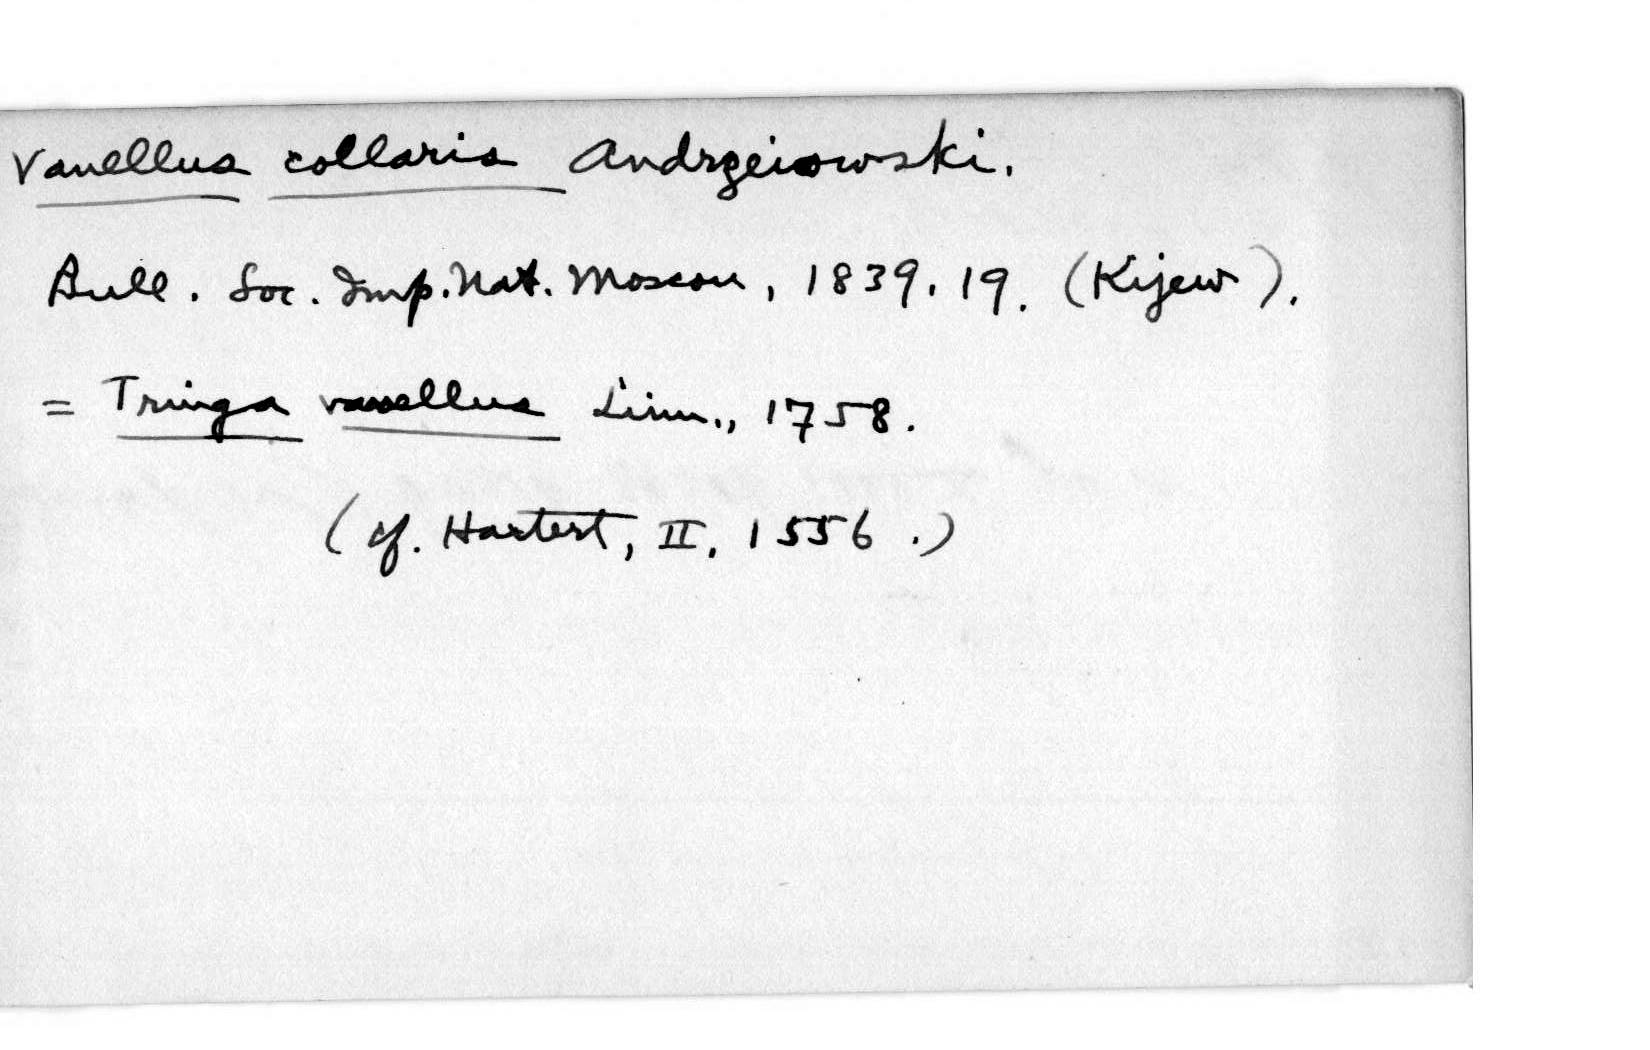 Vanellus collaris Andrzeiowski.
Bull. Soc. Imp. Nat. Moscou, 1839. 19. (Kijew).
= Tringa vanellus Linn., 1758.
(cf. Hartert, II, 1556.)